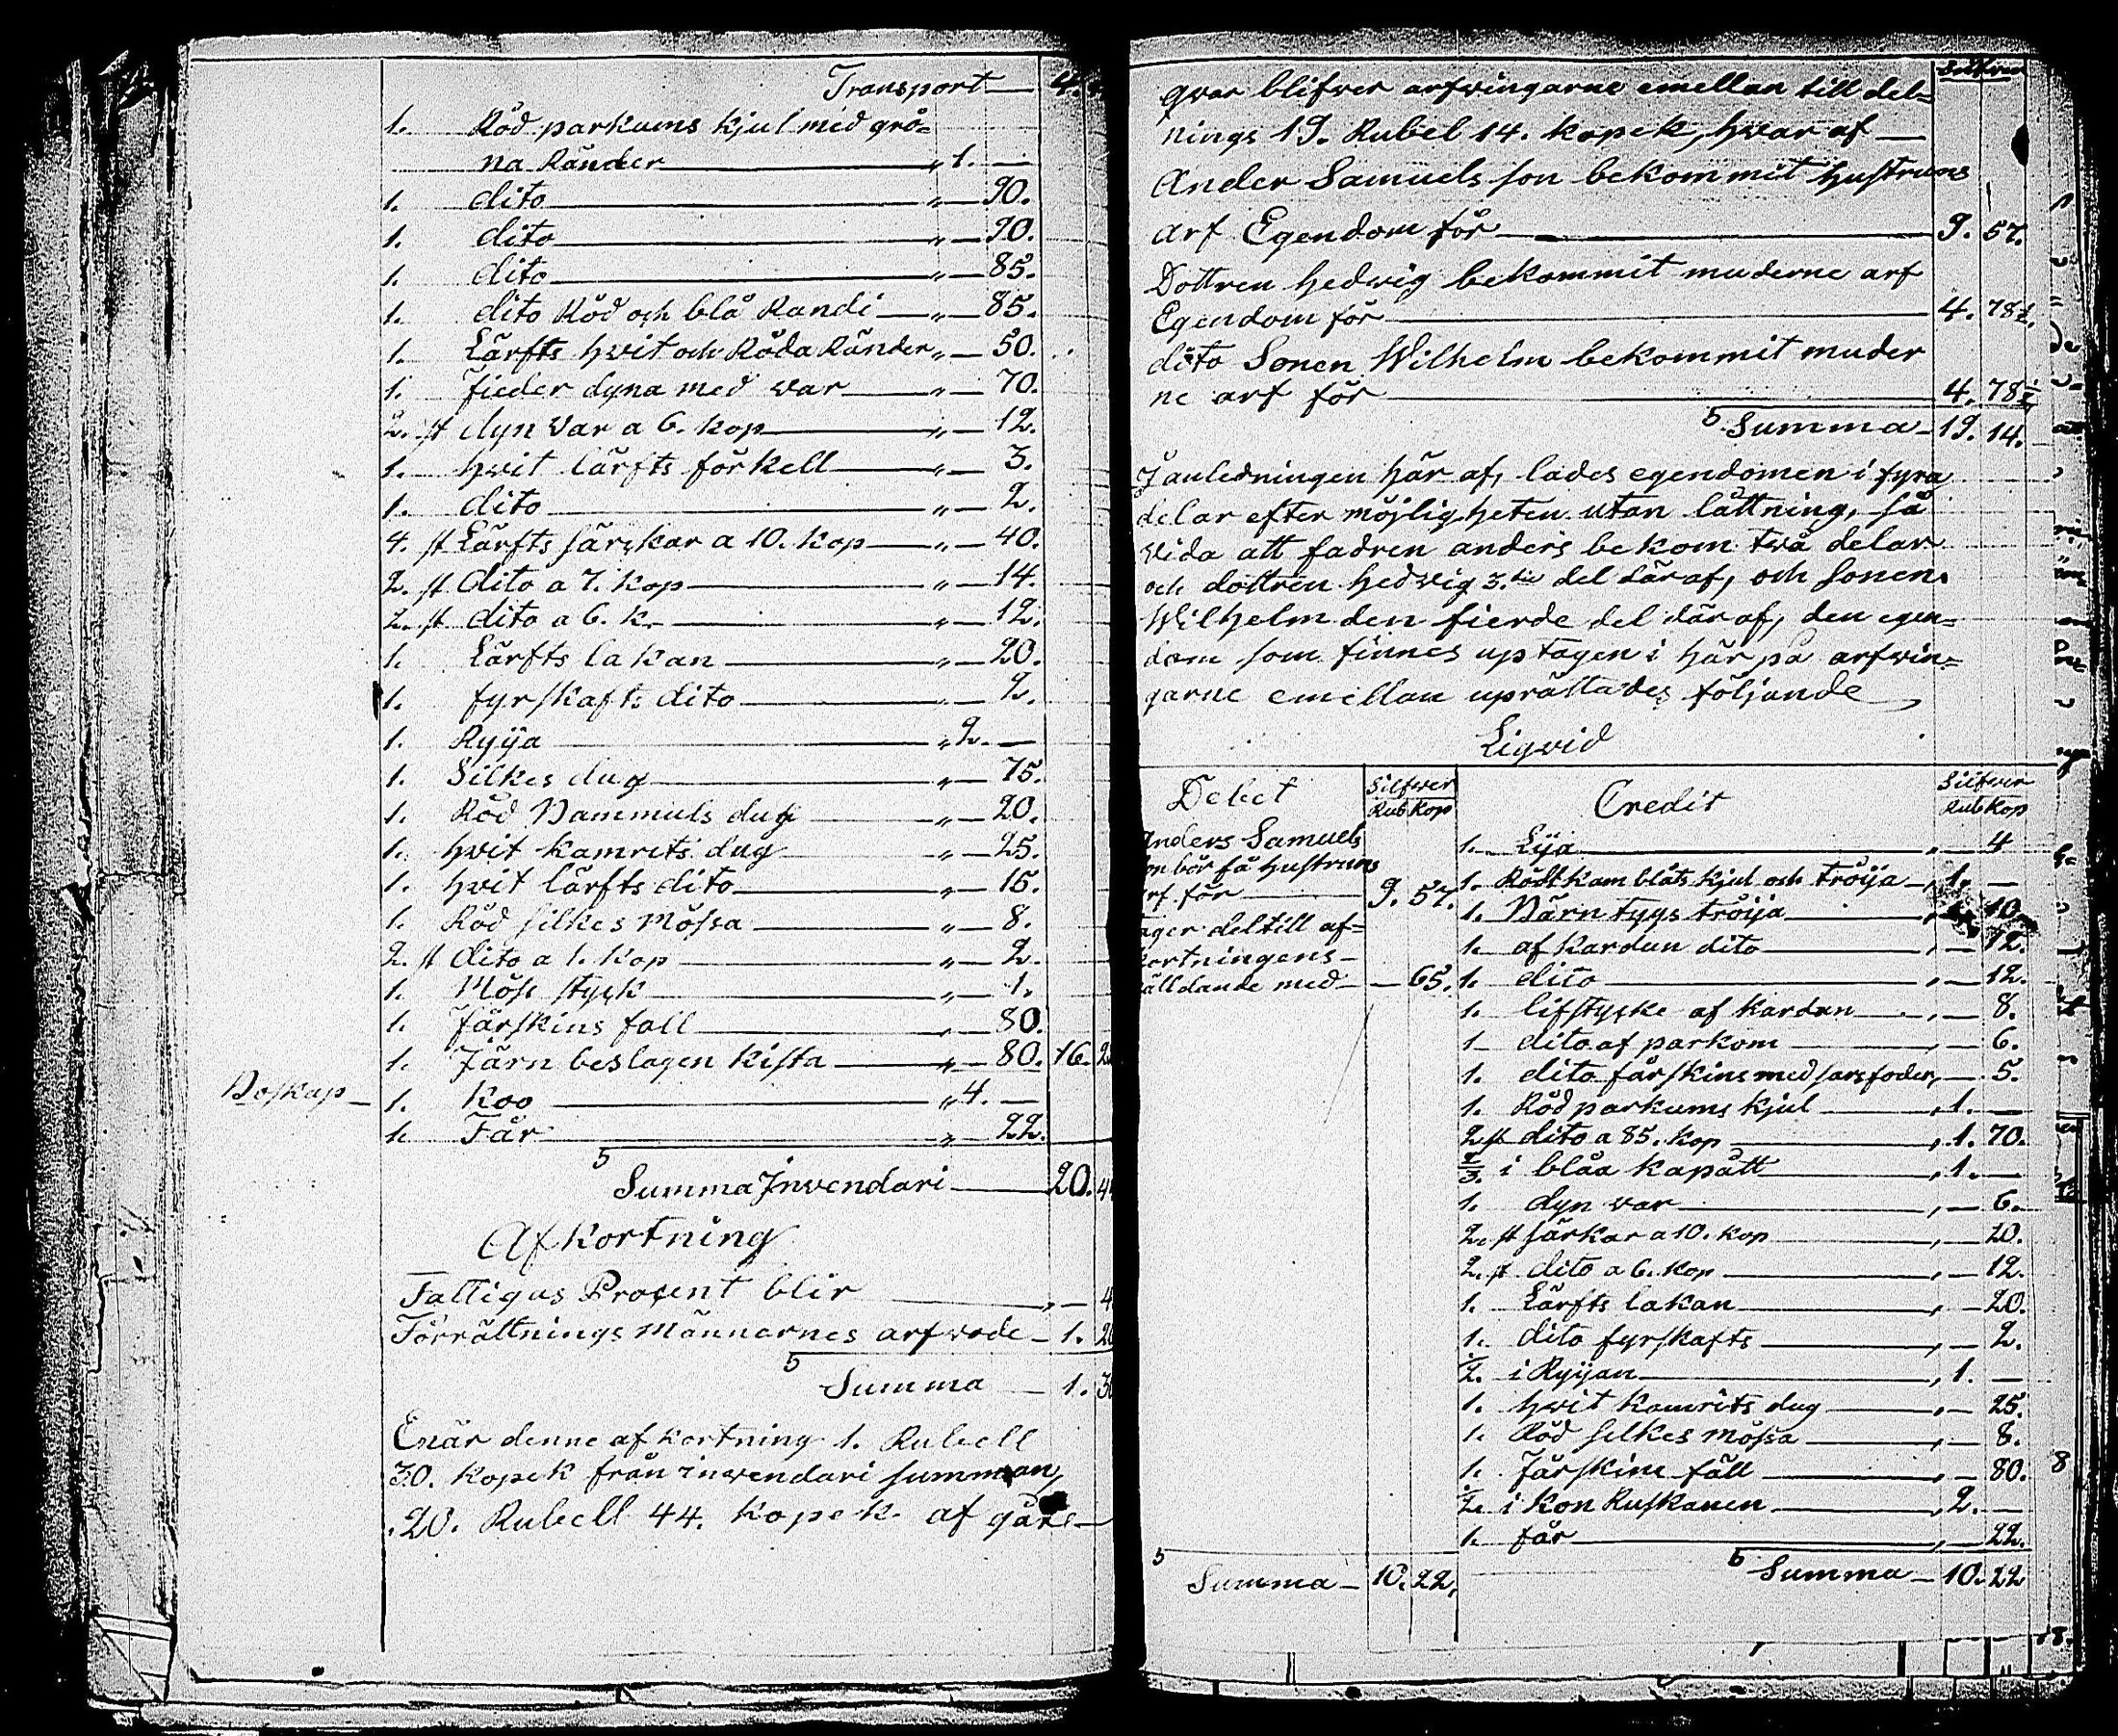 Transport — 4.
1. Röd parkums Kjul med grö=
na Ränder — „ 1. —
1. dito — „ — 90.
1. dito — „ — 90.
1. dito — „ — 85.
1. dito Röd och blå Randi — „ — 85.
1. Lärfts hvit och Röda Ränder „ — 50.
1. fieder dyna med war — „ — 70.
2. st dyn war a 6. kop — „ — 12.
1. hvit lärfts förkell — „ — 3.
1. dito — „ — 2.
4. st Lärfts särkar a 10. kop — „ — 40.
2. st dito a 7. kop — „ — 14.
2. st dito a 6. k. — „ — 12.
1. Lärfts lakan — „ — 20.
1. fyrskafts dito — „ — 2.
1. Ryija — „ 2. —
1. Silkes dug — „ — 75.
1. Röd Bammuls dug — „ — 20.
1. hvit kamrits dug — „ — 25.
1. hvit lärfts dito — „ — 15.
1. Röd silkes Mössa — „ — 8.
2. st dito a 1. kop — „ — 2.
1. Möss styck — „ — 1.
1. fårskins fäll — „ — 80.
1. Järn beslagen Kista — „ — 80. 16. 2
Boskap — 1. Koo — „ 4. —
1. Får — „ — 22.
Summa Inwendari — 20. 4
Afkortning
Fattigas Procent blir — „ — 4
Förrättnings Männernes arfwode — 1. 20
Summa — 1. 3
Enär denne afkortning 1. Rubell
30. kopek från inwendari summan,
20. Rubell 44. kopek. af gåre —
qvar blifver arfvingarne emellan till del=
nings 19. Rubel 14. kopek, hvar af —
Ander Samuels son bekommit hustruns
arf Egendom för — 9. 57.
Dottren Hedvig bekommit muderne arf
Egendom för — 4. 78½.
dito Sonen Wilhelm bekommit muder
ne arf för — 4. 78½
Summa — 19. 14.
I anledningen här af, lades egendomen i fyra
delar efter möjligheten utan lättning, så
vida att fadren anders bekom två delar
och dottren Hedvig 3.die del däraf, och sonen
Wilhelm den fierde del däraf, den egen=
dom som finnes uptagen i här på arfvin=
garne emellan uprättades följande
Liqvid
Debet Silfwer Rub Kop Credit Silfwer Rub Kop
Anders Samuels
on bör få hustruns
rf för — 9. 57.
ager del till af=
kortningens —
älldande med — — 65.
1. Lija — „ — 4
1. Rödt kam blåts kjul och tröija — „ 1. —
1. Bärn tygs tröija — 10
1. af kardun dito — „ — 12.
1. dito — „ — 12.
1. lifstycke af Kardun — „ — 8.
1 dito af parkom — „ — 6.
1. dito fårskins med sars foder „ — 5.
1. Röd parkums kjul — „ 1. —
2 st dito a 85. kop — „ 1. 70.
⅔ i blåa kapått — „ 1. —
1. dyn war — „ — 6.
2. st särkar a 10. kop — „ — 20.
2. st dito a 6. kop — „ — 12.
1. Lärfts lakan — „ — 20.
1. dito fyrskafts — „ — 2.
½. i Ryijan — „ 1. —
1. hvit Kamrits dug — „ — 25.
1. Röd silkes mössa — „ — 8.
1. Fårskins fäll — „ — 80.
½. i kon Ruskanen — „ 2. —
1. får — „ — 22.
Summa — 10. 22.
Summa — 10. 22